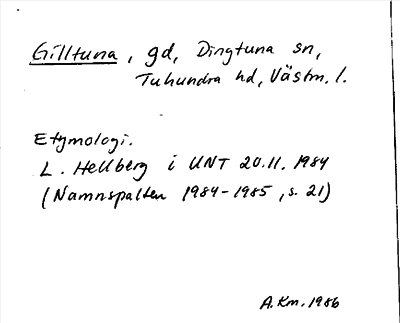 Gilltuna, gd, Dingtuna sn,
Tuhundra hd, Västm. l.
Etymologi.
L. Hellberg i UNT 20.11. 1984
(Namnspalten 1984-1985, s. 21)
A.Km. 1986